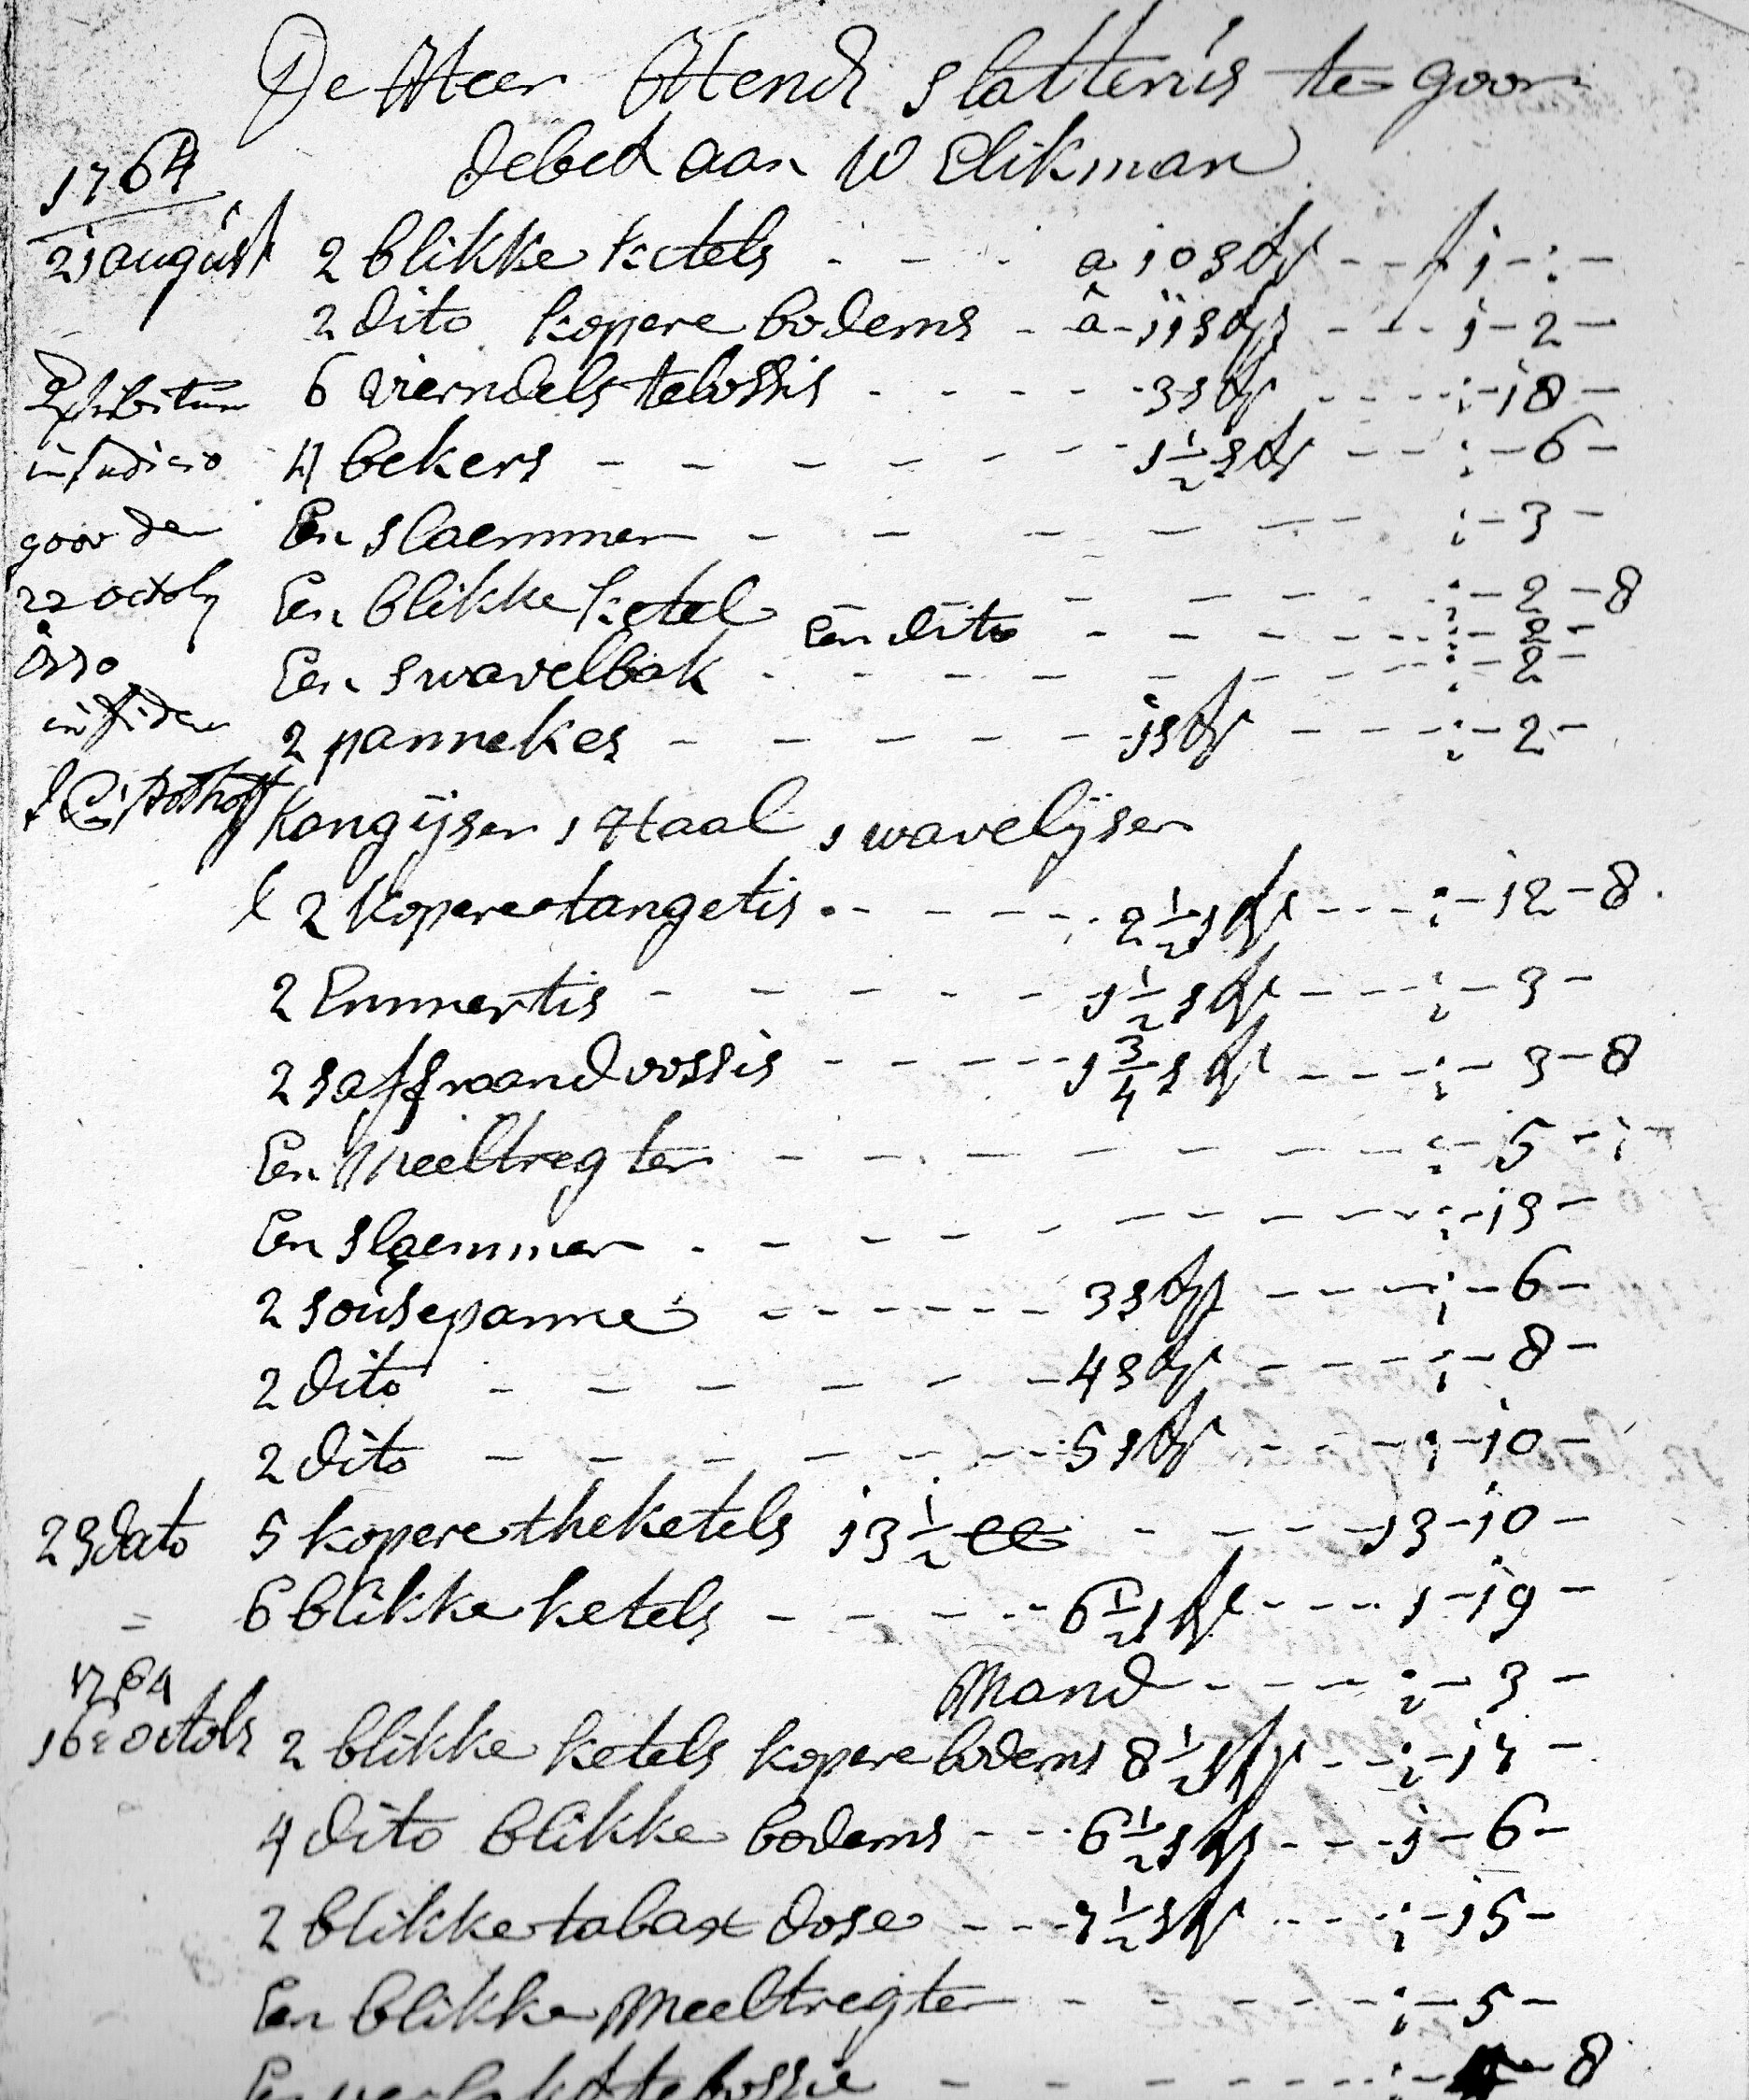 De Heer Hend Slatterus te goor
debet aan W Elikman
1764
21 august 2 blikke ketels - - - a 10 st - - f 1 - : -
2 dito kopere bodems - a - 11 st - - - 1 - 2 -
6 vierndels tebossis - - - - - 3 st - - - - : - 18 -
4 bekers - - - - - - - 1 1/2 st - - - : - 6 -
En slaemmer - - - - - - - : - 3 -
En blikke ketel - - - - - : - 2 - 8
Een dito - - - - - - : - 2 -
En swavelbak - - - - - - - - : - 2 -
2 pannekes - - - - - - 1 st - - - - : - 2 -
Exhibitum
in Judicio
goor de
22 octob
1770
in fidem
Kongijser, staal, swavelijser
2 kopere tangetis - - - - - 2 1/2 st - - - : - 12 - 8
2 Emmertis - - - - - - 1 1/2 st - - - : - 3 -
2 saffraandoossis - - - - - 1 3/4 st - - - : - 3 - 8
En Meeltregter - - - - - - - - : - 5 - : -
En slaemmer - - - - - - - - - : - 13 -
2 sousepanne - - - - - - 3 st - - - - : - 6 -
2 dito - - - - - - - 4 st - - - - : - 8 -
2 dito - - - - - - - 5 st - - - - : - 10 -
23 dato 5 kopere theketels 13 1/2 ll - - - - 13 - 10 -
6 blikke ketels - - - - - 6 1/2 st - - - - 1 - 19 -
Mand - - - - : - 3 -
1764
16 octobr 2 blikke ketels kopere bodems 8 1/2 st - - : - 17 -
4 dito blikke bodems - - - 6 1/2 st - - - - 1 - 6 -
2 blikke tabax dose - - - 7 1/2 st - - - - : - 15 -
En blikke Meeltregter - - - - - - : - 5 -
En verlakt tebossie - - - - - - : - 8